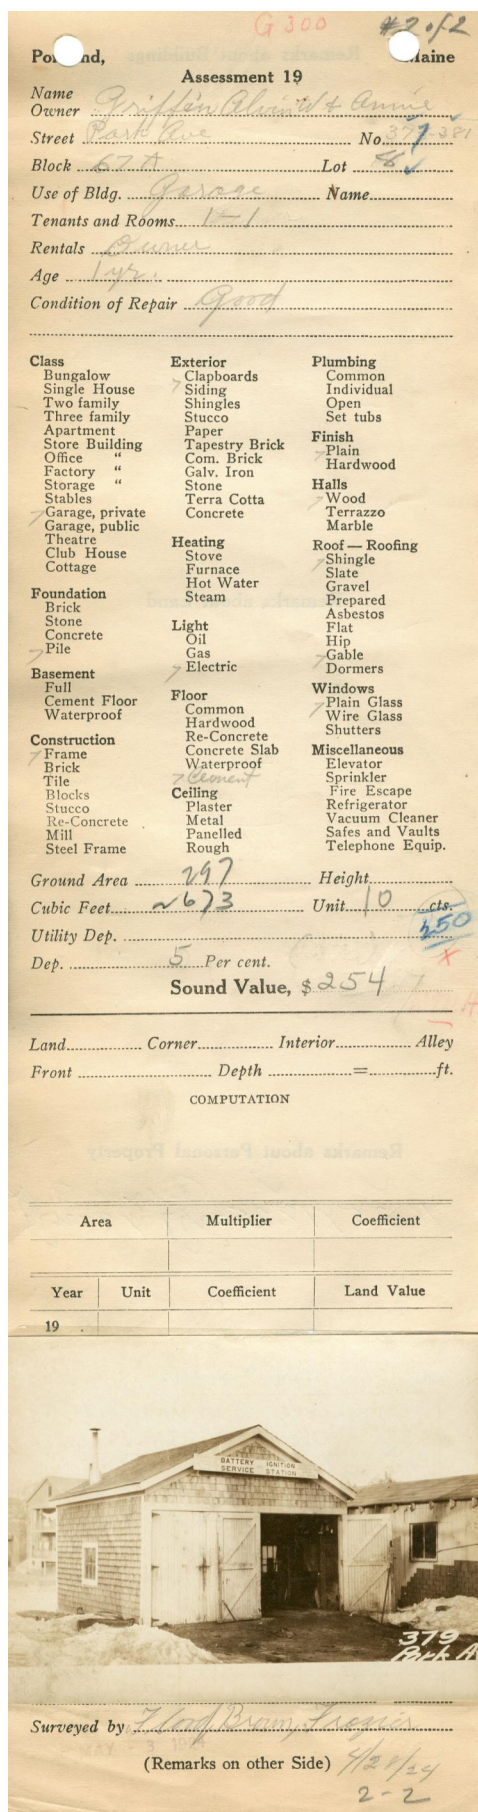 G 300 #2 of 2
Portland, Maine
Assessment 19
Name
Owner Griffin Alvin W & Annie
Street Park Ave No. 377-381
Block 67A Lot 8
Use of Bldg. Garage Name
Tenants and Rooms 1-1
Rentals Owner
Age 1 yr.
Condition of Repair Good
Class
Bungalow
Single House
Two family
Three family
Apartment
Store Building
Office "
Factory "
Storage "
Stables
Garage, private
Garage, public
Theatre
Club House
Cottage
Foundation
Brick
Stone
Concrete
Pile
Basement
Full
Cement Floor
Waterproof
Construction
Frame
Brick
Tile
Blocks
Stucco
Re-Concrete
Mill
Steel Frame
Exterior
Clapboards
Siding
Shingles
Stucco
Paper
Tapestry Brick
Com. Brick
Galv. Iron
Stone
Terra Cotta
Concrete
Heating
Stove
Furnace
Hot Water
Steam
Light
Oil
Gas
Electric
Floor
Common
Hardwood
Re-Concrete
Concrete Slab
Waterproof
Cement
Ceiling
Plaster
Metal
Panelled
Rough
Plumbing
Common
Individual
Open
Set tubs
Finish
Plain
Hardwood
Halls
Wood
Terrazzo
Marble
Roof — Roofing
Shingle
Slate
Gravel
Prepared
Asbestos
Flat
Hip
Gable
Dormers
Windows
Plain Glass
Wire Glass
Shutters
Miscellaneous
Elevator
Sprinkler
Fire Escape
Refrigerator
Vacuum Cleaner
Safes and Vaults
Telephone Equip.
Ground Area 297 Height
Cubic Feet 2673 Unit 10 cts.
250
Utility Dep.
Dep. 5 Per cent.
Sound Value, $ 254
Land Corner Interior Alley
Front Depth = ft.
COMPUTATION
Area Multiplier Coefficient
Year Unit Coefficient Land Value
19
BATTERY IGNITION
SERVICE STATION
379
Park A
Surveyed by Flood, Brown, Frazier
(Remarks on other Side) 4/28/24
2-2